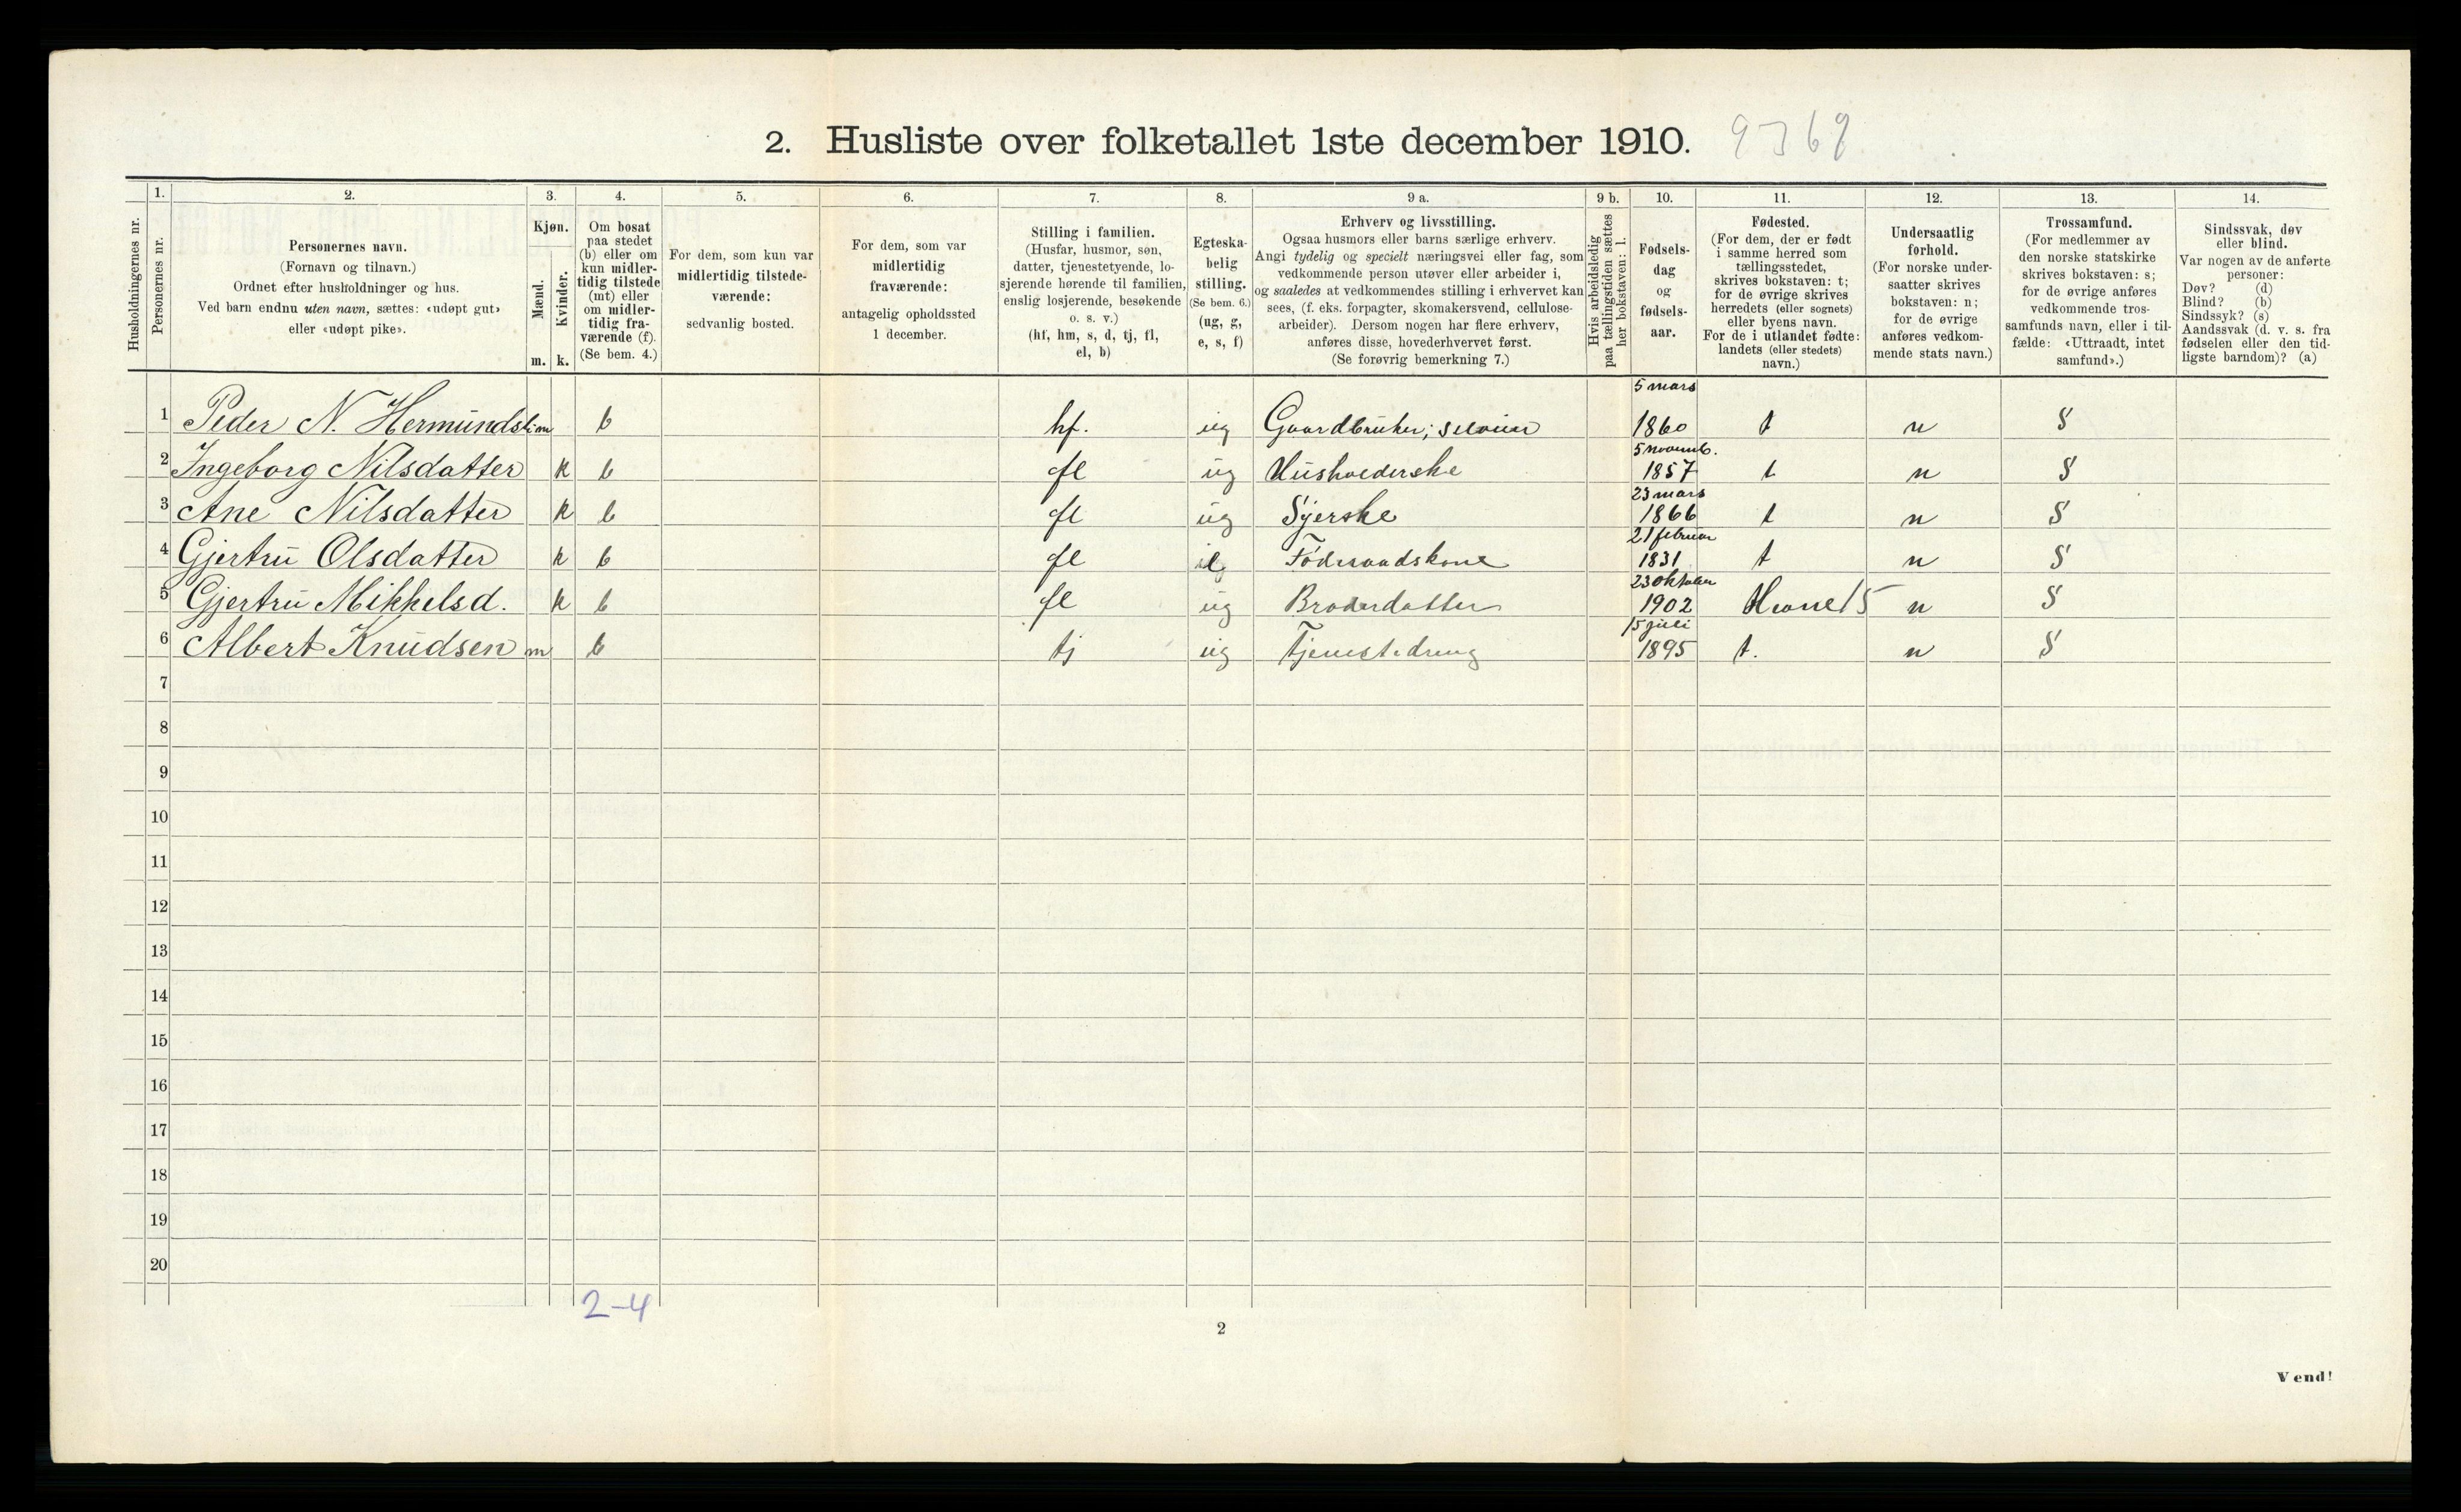 2. Husliste over folketallet 1ste december 1910.
Husholdningernes nr.
1. Personernes nr.
2. Personernes navn.
(Fornavn og tilnavn.)
Ordnet efter husholdninger og hus.
Ved barn endnu uten navn, sættes: «udøpt gut»
eller «udøpt pike».
3. Kjøn.
Mænd. m.
Kvinder. k.
4. Om bosat
paa stedet
(b) eller om
kun midler-
tidig tilstede
(mt) eller
om midler-
tidig fra-
værende (f).
(Se bem. 4.)
5. For dem, som kun var
midlertidig tilstede-
værende:
sedvanlig bosted.
6. For dem, som var
midlertidig
fraværende:
antagelig opholdssted
1 december.
7. Stilling i familien.
(Husfar, husmor, søn,
datter, tjenestetyende, lo-
sjerende hørende til familien,
enslig losjerende, besøkende
o. s. v.)
(hf, hm, s, d, tj, fl,
el, b)
8. Egteska-
belig
stilling.
(Se bem. 6.)
(ug, g,
e, s, f)
9 a. Erhverv og livsstilling.
Ogsaa husmors eller barns særlige erhverv.
Angi tydelig og specielt næringsvei eller fag, som
vedkommende person utøver eller arbeider i,
og saaledes at vedkommendes stilling i erhvervet kan
sees, (f. eks. forpagter, skomakersvend, cellulose-
arbeider). Dersom nogen har flere erhverv,
anføres disse, hovederhvervet først.
(Se forøvrig bemerkning 7.)
9 b. Hvis arbeidsledig
paa tællingstiden sættes
her bokstaven: l.
10. Fødsels-
dag
og
fødsels-
aar.
11. Fødested.
(For dem, der er født
i samme herred som
tællingsstedet,
skrives bokstaven: t;
for de øvrige skrives
herredets (eller sognets)
eller byens navn.
For de i utlandet fødte:
landets (eller stedets)
navn.)
12. Undersaatlig
forhold.
(For norske under-
saatter skrives
bokstaven: n;
for de øvrige
anføres vedkom-
mende stats navn.)
13. Trossamfund.
(For medlemmer av
den norske statskirke
skrives bokstaven: s;
for de øvrige anføres
vedkommende tros-
samfunds navn, eller i til-
fælde: «Uttraadt, intet
samfund».)
14. Sindssvak, døv
eller blind.
Var nogen av de anførte
personer:
Døv? (d)
Blind? (b)
Sindssyk? (s)
Aandssvak (d. v. s. fra
fødselen eller den tid-
ligste barndom)? (a)
1 Peder N. m b hf. ug Gaardbruker; 5 mars 1860 t n S
2 Ingeborg Nilsdatter k b fl ug Husholderske 5 novemb. 1857 t n S
3 Ane Nilsdatter k b fl ug Syerske 23 mars 1866 t n S
4 Gjertru Olsdatter k b fl e Föderaadskone 21 februar 1831 t n S
5 Gjertru Mikkelsd. k b fl ug Broderdatter 23 oktober 1902 n S
6 Albert Knudsen m b tj ug Tjenestedreng 15 juli 1895 t. n S
7
8
9
10
11
12
13
14
15
16
17
18
19
20
2-4
2
Vend!